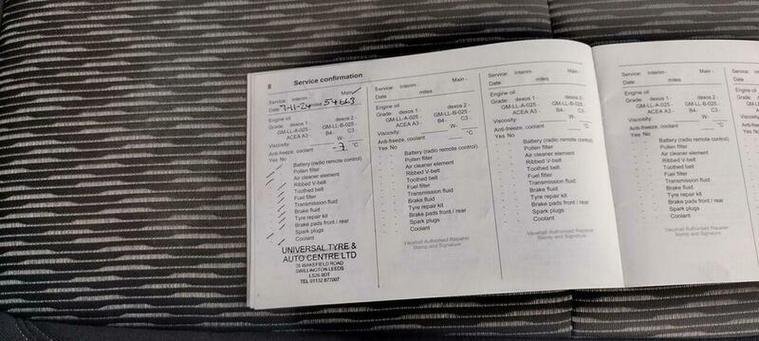 8
Service confirmation
Service: Interim - Main -
Date 7-11-24 miles 54663
Engine oil
Grade: dexos 1 - dexos 2 -
GM-LL-A-025 - GM-LL-B-025 -
ACEA A3 - B4 - C3 -
Viscosity: W-
Anti-freeze, coolant -7 °C
Yes No
Battery (radio remote control)
Pollen filter
Air cleaner element
Ribbed V-belt
Toothed belt
Fuel filter
Transmission fluid
Brake fluid
Tyre repair kit
Brake pads front / rear
Spark plugs
Coolant
UNIVERSAL TYRE &
AUTO CENTRE LTD
WAKEFIELD ROAD
SWILLINGTON LEEDS
LS26 8DT
TEL 01132 877007
Service: Interim - Main -
Date miles
Engine oil
Grade: dexos 1 - dexos 2 -
GM-LL-A-025 - GM-LL-B-025 -
ACEA A3 - B4 - C3 -
Viscosity: W-
Anti-freeze, coolant °C
Yes No
Battery (radio remote control)
Pollen filter
Air cleaner element
Ribbed V-belt
Toothed belt
Fuel filter
Transmission fluid
Brake fluid
Tyre repair kit
Brake pads front / rear
Spark plugs
Coolant
Vauxhall Authorised Repairer
Stamp and Signature
Service: Interim - Main -
Date miles
Engine oil
Grade: dexos 1 - dexos 2 -
GM-LL-A-025 - GM-LL-B-025 -
ACEA A3 - B4 - C3 -
Viscosity: W-
Anti-freeze, coolant °C
Yes No
Battery (radio remote control)
Pollen filter
Air cleaner element
Ribbed V-belt
Toothed belt
Fuel filter
Transmission fluid
Brake fluid
Tyre repair kit
Brake pads front / rear
Spark plugs
Coolant
Vauxhall Authorised Repairer
Stamp and Signature
Service: Interim - Main -
Date miles
Engine oil
Grade: dexos 1 - dexos 2 -
GM-LL-A-025 - GM-LL-B-025 -
ACEA A3 - B4 - C3 -
Viscosity: W-
Anti-freeze, coolant °C
Yes No
Battery (radio remote control)
Pollen filter
Air cleaner element
Ribbed V-belt
Toothed belt
Fuel filter
Transmission fluid
Brake fluid
Tyre repair kit
Brake pads front / rear
Spark plugs
Coolant
Vauxhall Authorised Repairer
Stamp and Signature
Service:
Date
Engine oil
Grade:
Viscosity:
Anti-freeze
Yes No